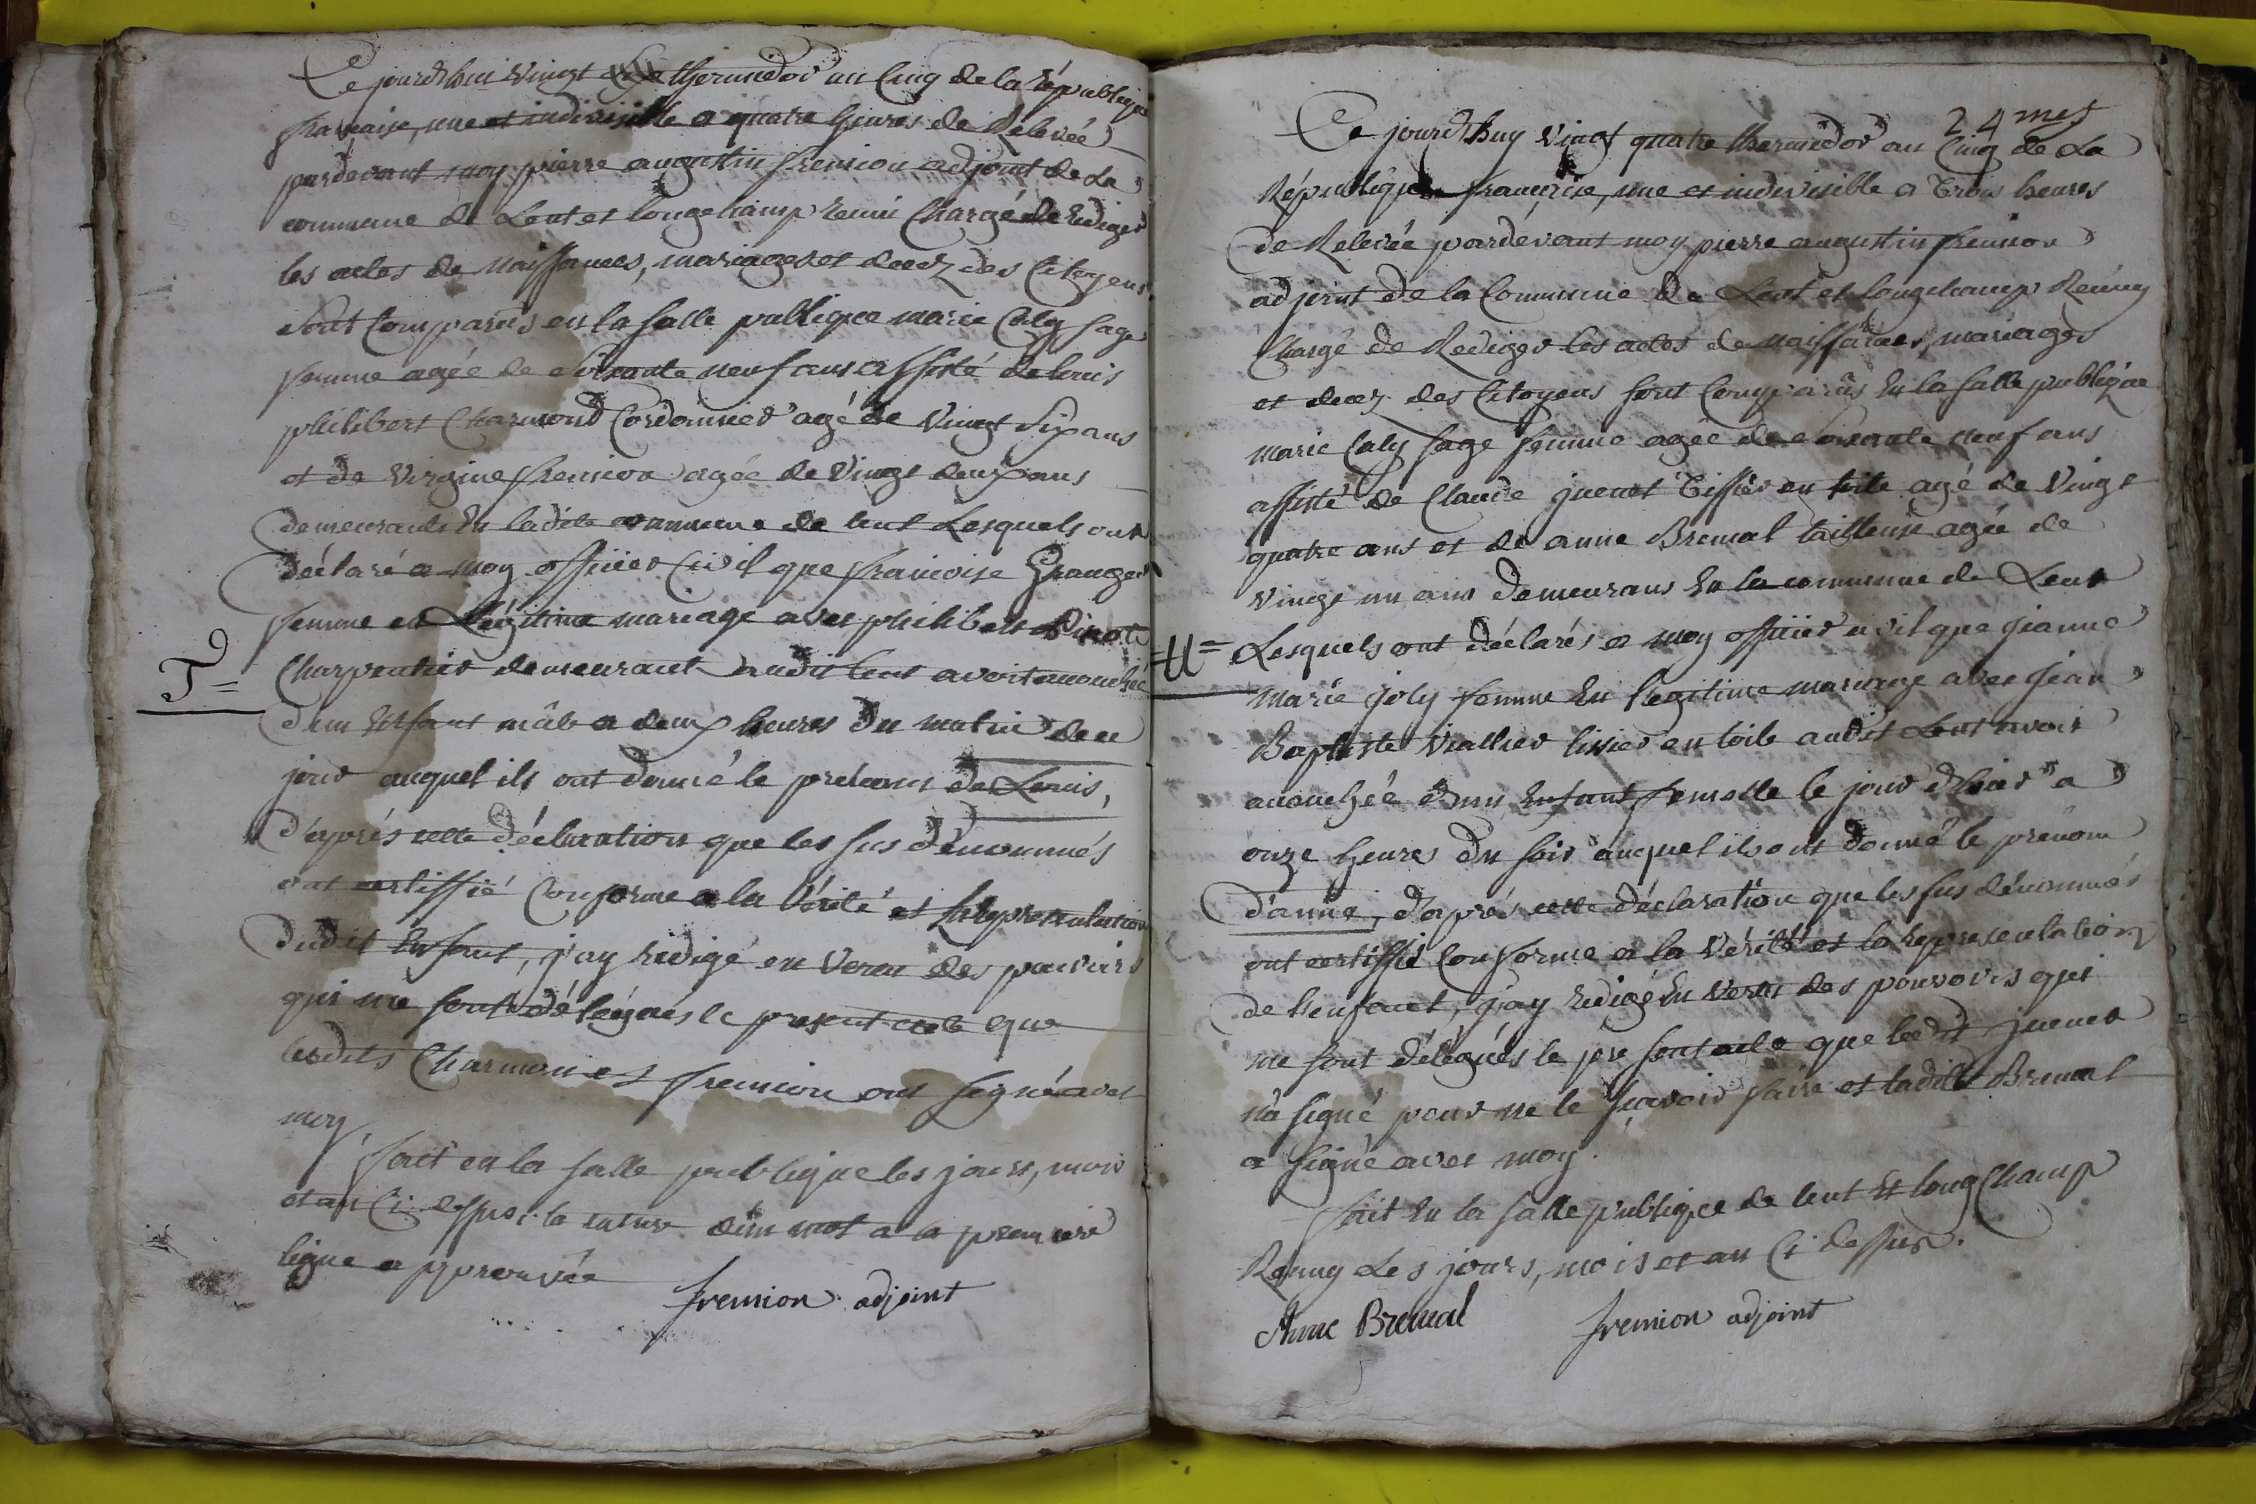 Ce jourdhui vingt thermidor an Cinq de la république
francaise, une et indivisible a quatre heures de Relevée
pardevant moy pierre augustin fremion adjoint de La
commune de Lent et Longchamp reuni Chargé de rediger
les actes de naissances, mariages et decez des Citoyens
sont Comparus en la salle publique marie Caly sage
femme agée de soixante neuf ans assisté de louis
philibert Charmond Cordonnier agé de vingt Six ans
et de virginie fremion agée de vingt deux ans
demeurants en ladite commune de lent Lesquels ont
déclaré a moy officier Civil que francoise Granger
femme en Légitime mariage avec philibert
Charpentier demeurant audit lent avoit accouchée
d'un Enfant mâle a deux heures du matin de ce
jour auquel ils ont donné le prenom de Louis,
T=
D'après cette déclaration que les sus dénommés
ont certiffié Conforme a la Vérité et la representation
dudit Enfant, j'ay redigé en vertu des pouvoirs
qui me sont délégués le present acte que
lesdits Charmon et fremion ont signé avec
moy,
fait en la salle publique les jours, mois
et an Ci dessus. la rature d'un mot a la premiere
ligne approuvée
fremion adjoint
24 mes
Ce jourdhuy vingt quatre thermidor an Cinq de La
République francaise, une et indivisible a Trois heures
de Relevée pardevant moy pierre augustin fremion
adjoint de la Commune de Lent et Longchamp Réuny
Chargé de Rediger les actes de naissances, mariages
et decez des Citoyens sont Comparus En la salle publique
marie Caly sage femme agée de soixante neuf ans
assisté de Claude juenet Tissier en toile agé de Vingt
quatre ans et de anne Bremal tailleuse agée de
vingt un ans demeurans En la commune de Lent
U= Lesquels ont déclarés a moy officier civil que jeanne
marie joly femme En legitime mariage avec jean
Baptiste Viallier tissier en toile audit Lent avoir
accouchée d'un Enfant femelle le jour d'hier a
onze heures du soir auquel ils ont donné le prénom
d'anne, d'après cette déclaration que les sus dénommés
ont certiffié Conforme a la Vérité et la representation
de l'enfant, j'ay redigé En vertu des pouvoirs qui
me sont délégués le present acte que ledit juenet
n'a signé pour ne le sçavoir faire et ladite Bremal
a signé avec moy.
fait En la salle publique de lent Et longChamp
Reuny Les jours, mois et an Ci dessus.
Anne Bremal fremion adjoint